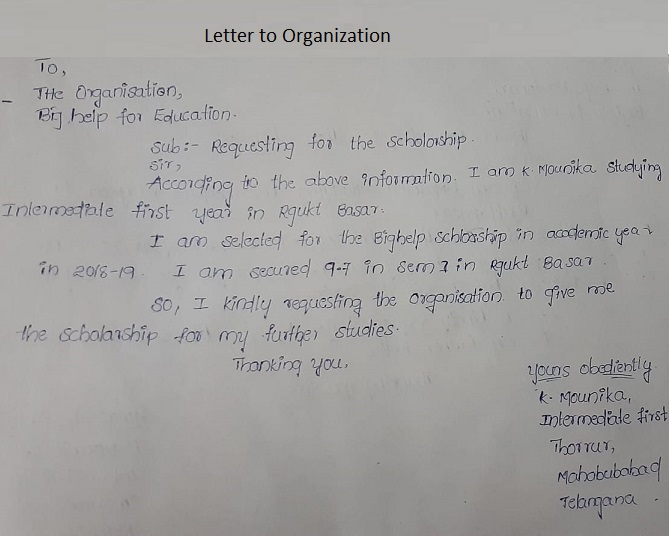 Letter to Organization
To,
THe Organisation,
Big help for Education.
Sub:- Requesting for the scholorship.
Sir,
According to the above information. I am K. Mounika studying
Intermediate first year in Rgukt Basar.
I am selected for the Bighelp schloarship in academic year
in 2018-19. I am secured 9.7 in sem 1 in Rgukt Basar.
So, I kindly requesting the organisation to give me
the scholarship for my further studies.
Thanking you,
yours obediently
K. Mounika,
Intermediate first
Thorrur,
Mahobubabad
Telangana.